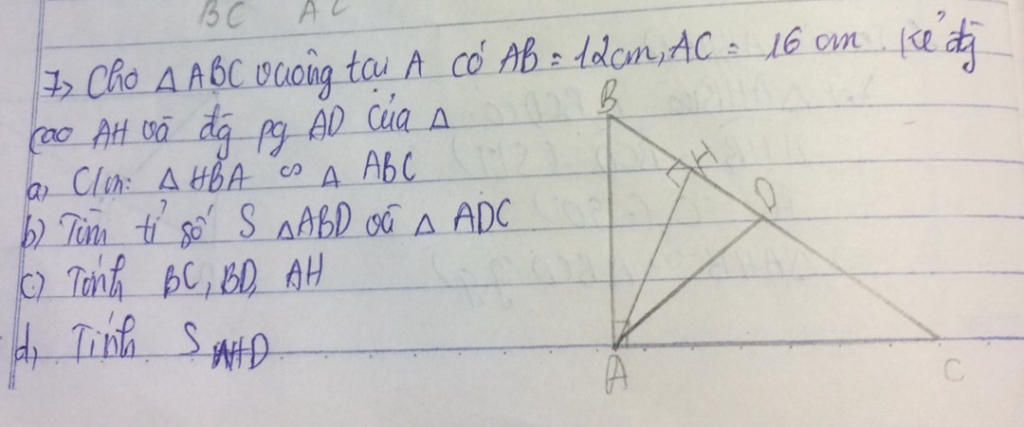 BC AC
7, Cho △ABC vuông tại A có AB = 12cm, AC = 16 cm. Kẻ đg
cao AH và đg pg AD của △
a, C/m: △ HBA ∽ △ ABC
b) Tìm tỉ số S △ABD và △ ADC
c) Tính BC, BD, AH
d, Tính S AHD
B
H
D
A
C